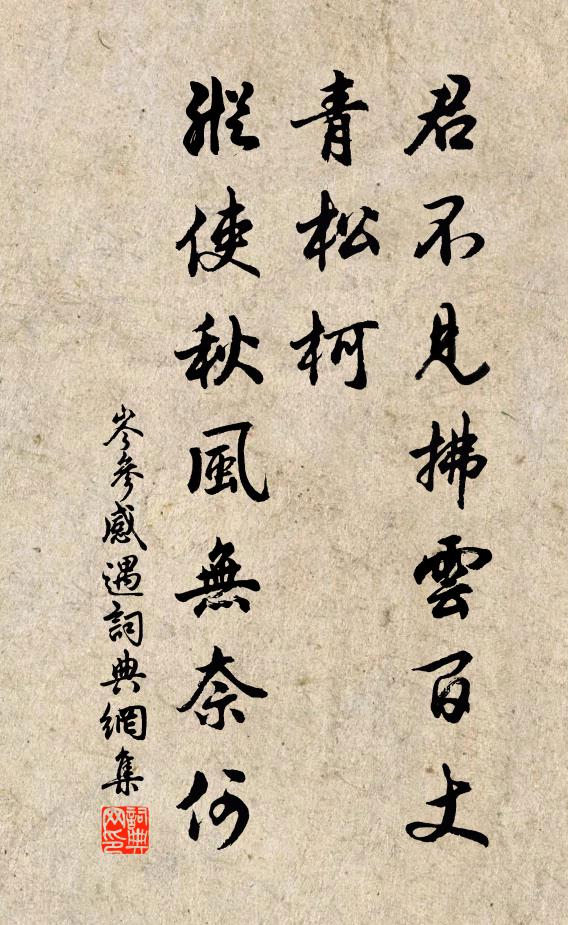 君不見拂雲百丈
青松柯
縱使秋風無奈何
岑參感遇詞典網集
詞典网印